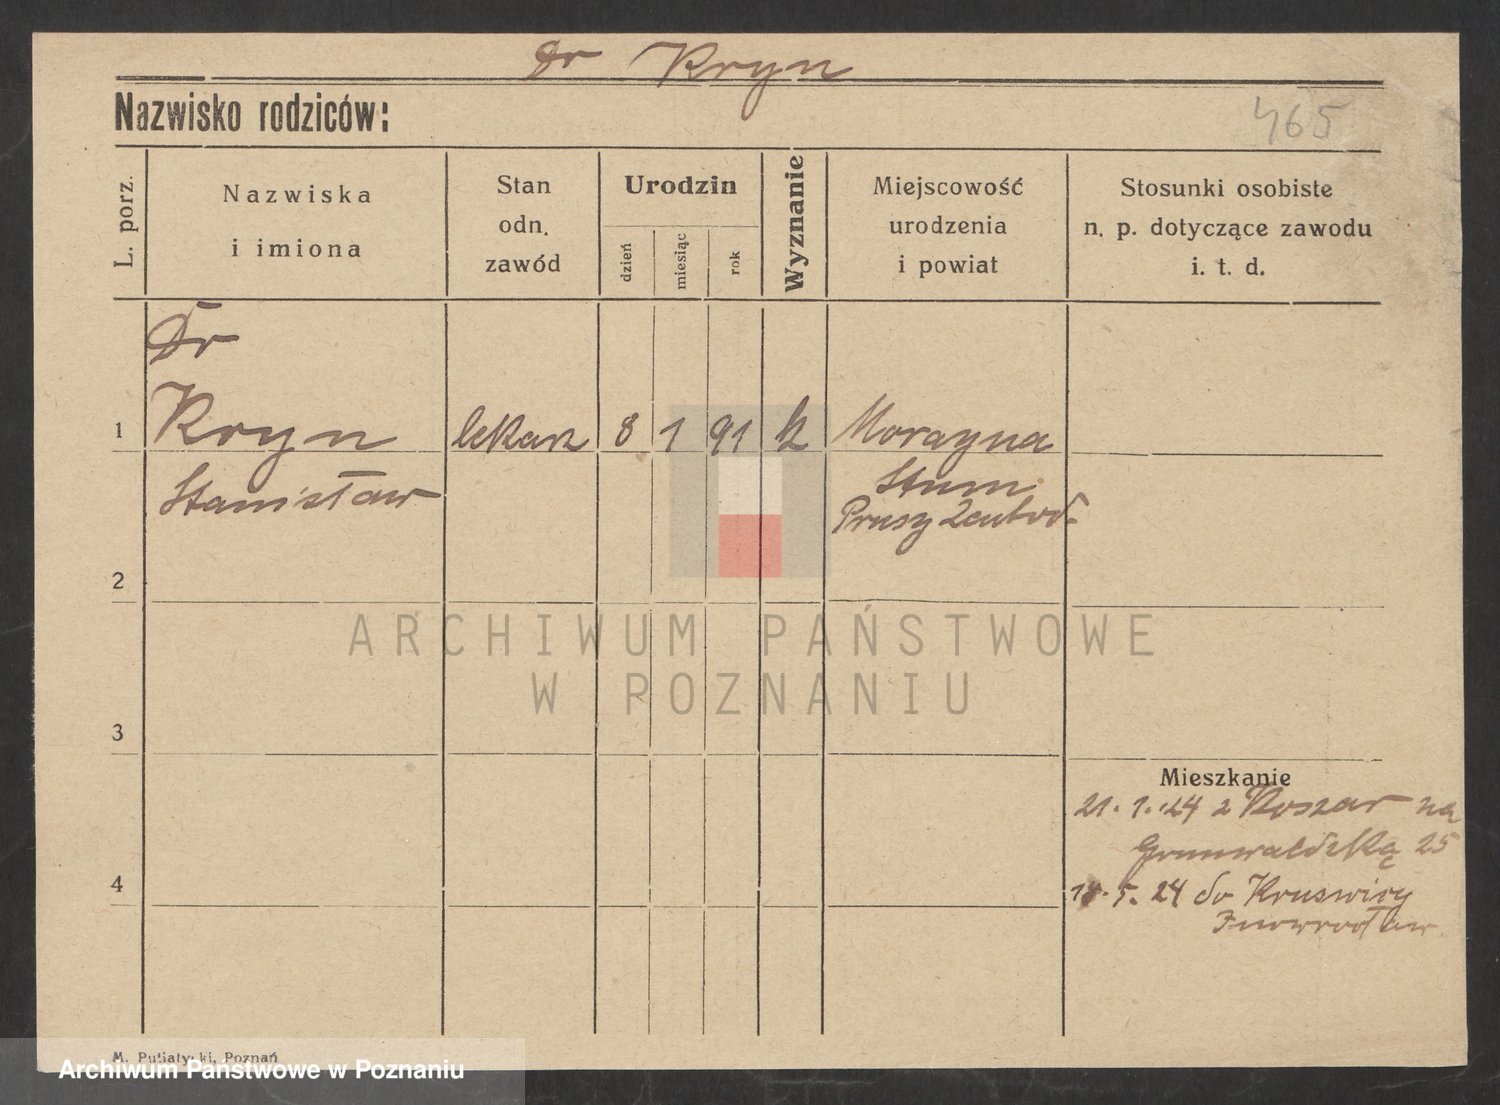 Dr Kryn
Nazwisko rodziców:
465
L. porz.
Nazwiska
i imiona
Stan
odn.
zawód
Urodzin
dzień
miesiąc
rok
Wyznanie
Miejscowość
urodzenia
i powiat
Stosunki osobiste
n. p. dotyczące zawodu
i. t. d.
Dr
1 Kryn lekarz 8 1 91 k Morayna
Stanisław Stum
Prusy Zachod.
2
ARCHIWUM PAŃSTWOWE
W POZNANIU
3
Mieszkanie
21. 1. 24 z Koszar na
Grunwaldzką 25
4
18. 5. 24 do Kruswicy
Inowrocław
M. Putiatycki, Poznań
Archiwum Państwowe w Poznaniu